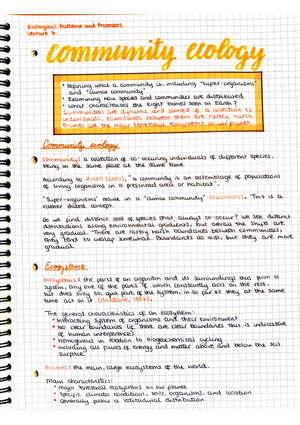 Ecological Patterns and Processes
Lecture 6
community ecology
• Defining what a community is, including "super organisms"
and "climax community"
• Examining how species and communities are distributed.
• What characterises the eight biomes seen on Earth?
Communities are dynamic and formed of a collection of
individuals. Boundaries between them are rarely harsh.
Biomes are the major terrestrial ecosystems on our planet.
Community ecology:
Community: a collection of co-occuring individuals of different species,
being in the same place at the same time.
According to "a community is an assemblage of populations
of living organisms in a prescribed area or habitat".
"Super-organisms" result in a "climax community" This is a
rather dated concept.
Do we find distinct sets of species that always co-occur? We see distinct
distributions along environmental gradients, but overall the shifts are
very gradual. There are rarely harsh boundaries between communities,
they tend to overlap somewhat. Boundaries do exist, but they are more
gradual.
Ecosystems:
Ecosystems: the parts of an organism and its surroundings that form a
system, any one of the parts of which constantly acts on the rest;
but does so only so, qua part of the system, in so far as they at the same
time act on it (Haldane, 1884).
The general characteristics of an ecosystem:
• Interacting system of organisms and their environment
• No clear boundaries (if there are clear boundaries this is indicative
of human interference)
• Homogenous in relation to biogeochemical cycling
• Including all fluxes of energy and matter above and below the soil
surface
Biomes: the main, large ecosystems of the world.
Main characteristics:
• major terrestrial ecosystems on our planet
• specific climatic conditions, soils, organisms, and location
• generally follow a latitudinal distribution